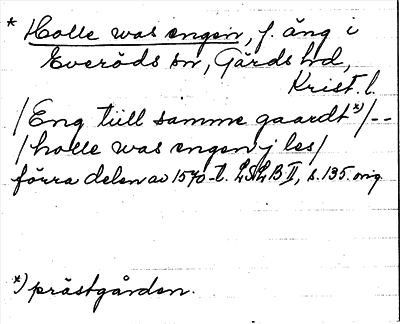 * Holle was engen, f. äng i
Everöds sn, Gärds hd,
Krist. l.
/Eng tiill samme gaardt*)/--
/holle was engen j les/
förra delen av 1570-t. LSLB II, s. 135. orig
*) prästgården.